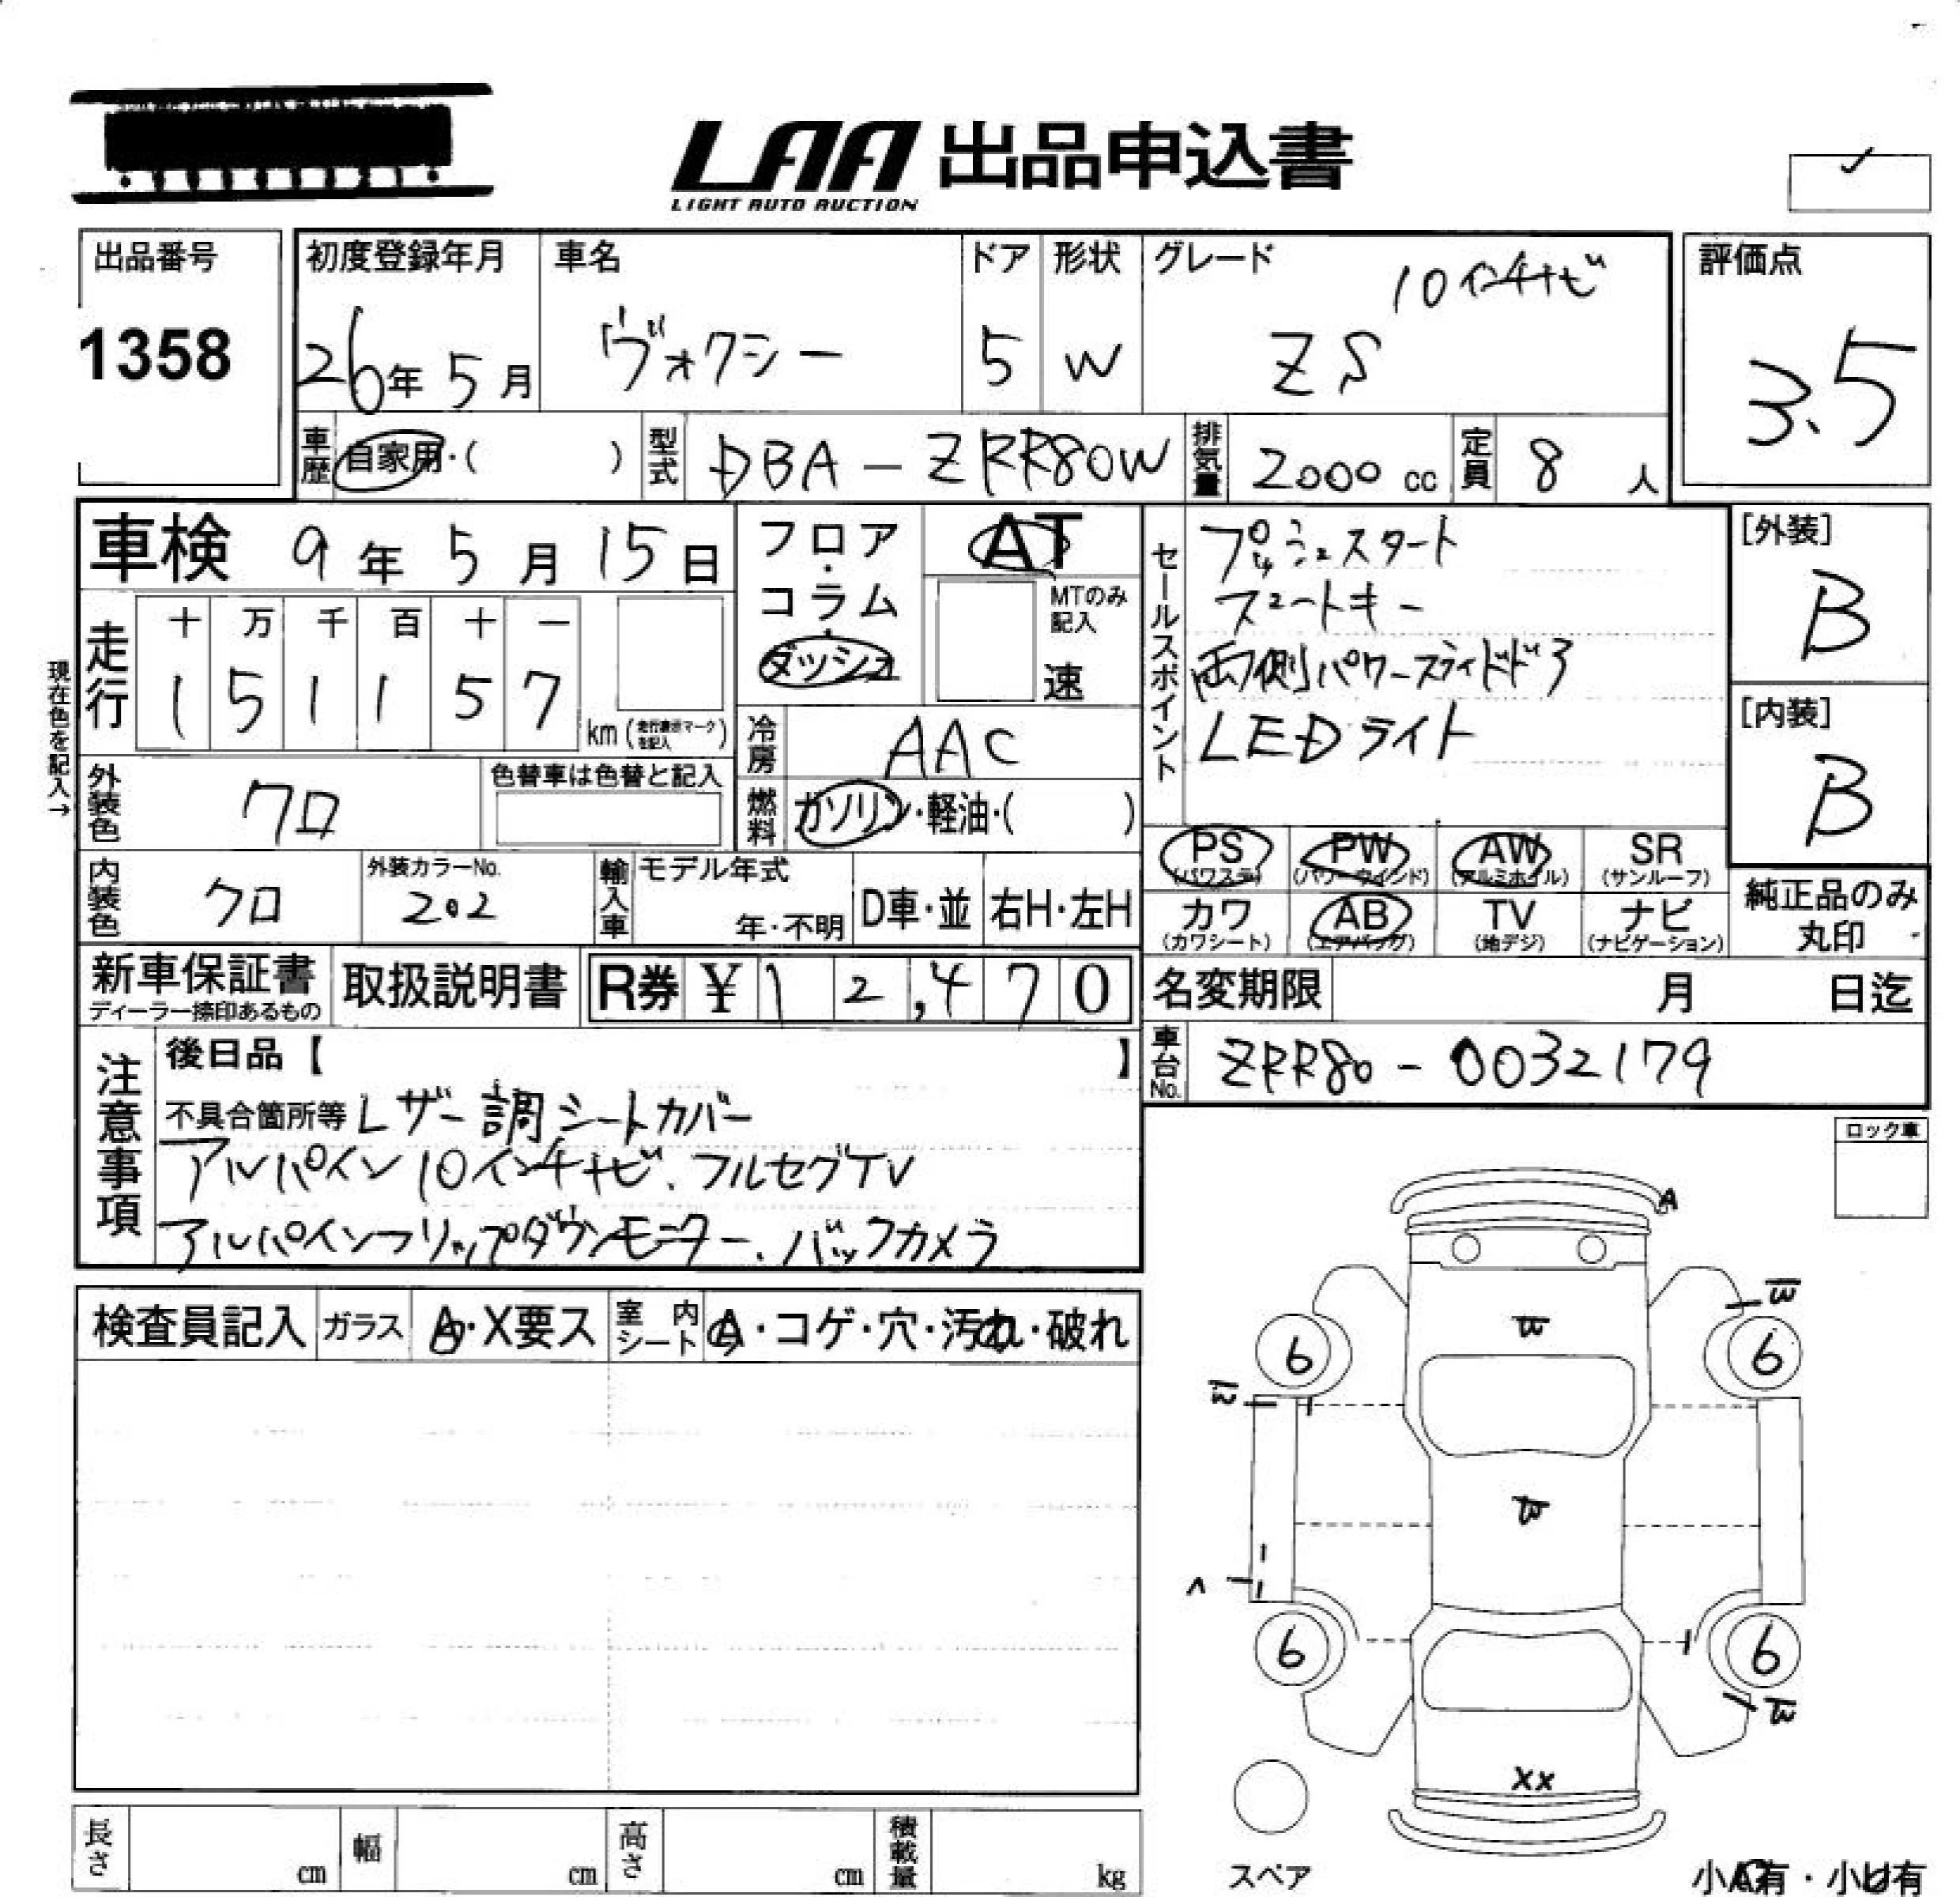 LAA 出品申込書
LIGHT AUTO AUCTION
出品番号
1358
初度登録年月
26年 5月
車名
ヴォクシー
ドア
5
形状
W
グレード
10インチナビ
ZS
評価点
3.5
車歴
自家用・( )
型式
DBA-ZRR80W
排気量
2000 cc
定員
8 人
車検 9年 5月 15日
フロア・コラム・ダッシュ
AT
MTのみ記入
速
走行
十 万 千 百 十 一
1 5 1 1 5 7
km(走行表示マークを記入)
現在色を記入→
冷房
AAC
燃料
ガソリン・軽油・( )
外装色
クロ
色替車は色替と記入
内装色
クロ
外装カラーNo.
202
輸入車
モデル年式
年・不明
D車・並
右H・左H
セールスポイント
プッシュスタート
スマートキー
両側パワースライドドア
LEDライト
[外装]
B
[内装]
B
PS
(パワステ)
PW
(パワーウインド)
AW
(アルミホイル)
SR
(サンルーフ)
カワ
(カワシート)
AB
(エアバッグ)
TV
(地デジ)
ナビ
(ナビゲーション)
純正品のみ
丸印
新車保証書
ディーラー捺印あるもの
取扱説明書
R券 ¥12,470
名変期限 月 日迄
車台No.
ZRR80-0032179
注意事項
後日品【 】
不具合箇所等 レザー調シートカバー
アルパイン10インチナビ、フルセグTV
アルパインフリップダウンモニター、バックカメラ
ロック車
検査員記入
ガラス
A・X要ス
室内シート
A・コゲ・穴・汚れ・破れ
A
6
6
6
6
XX
スペア
長さ cm
幅 cm
高さ cm
積載量 kg
小A有・小U有